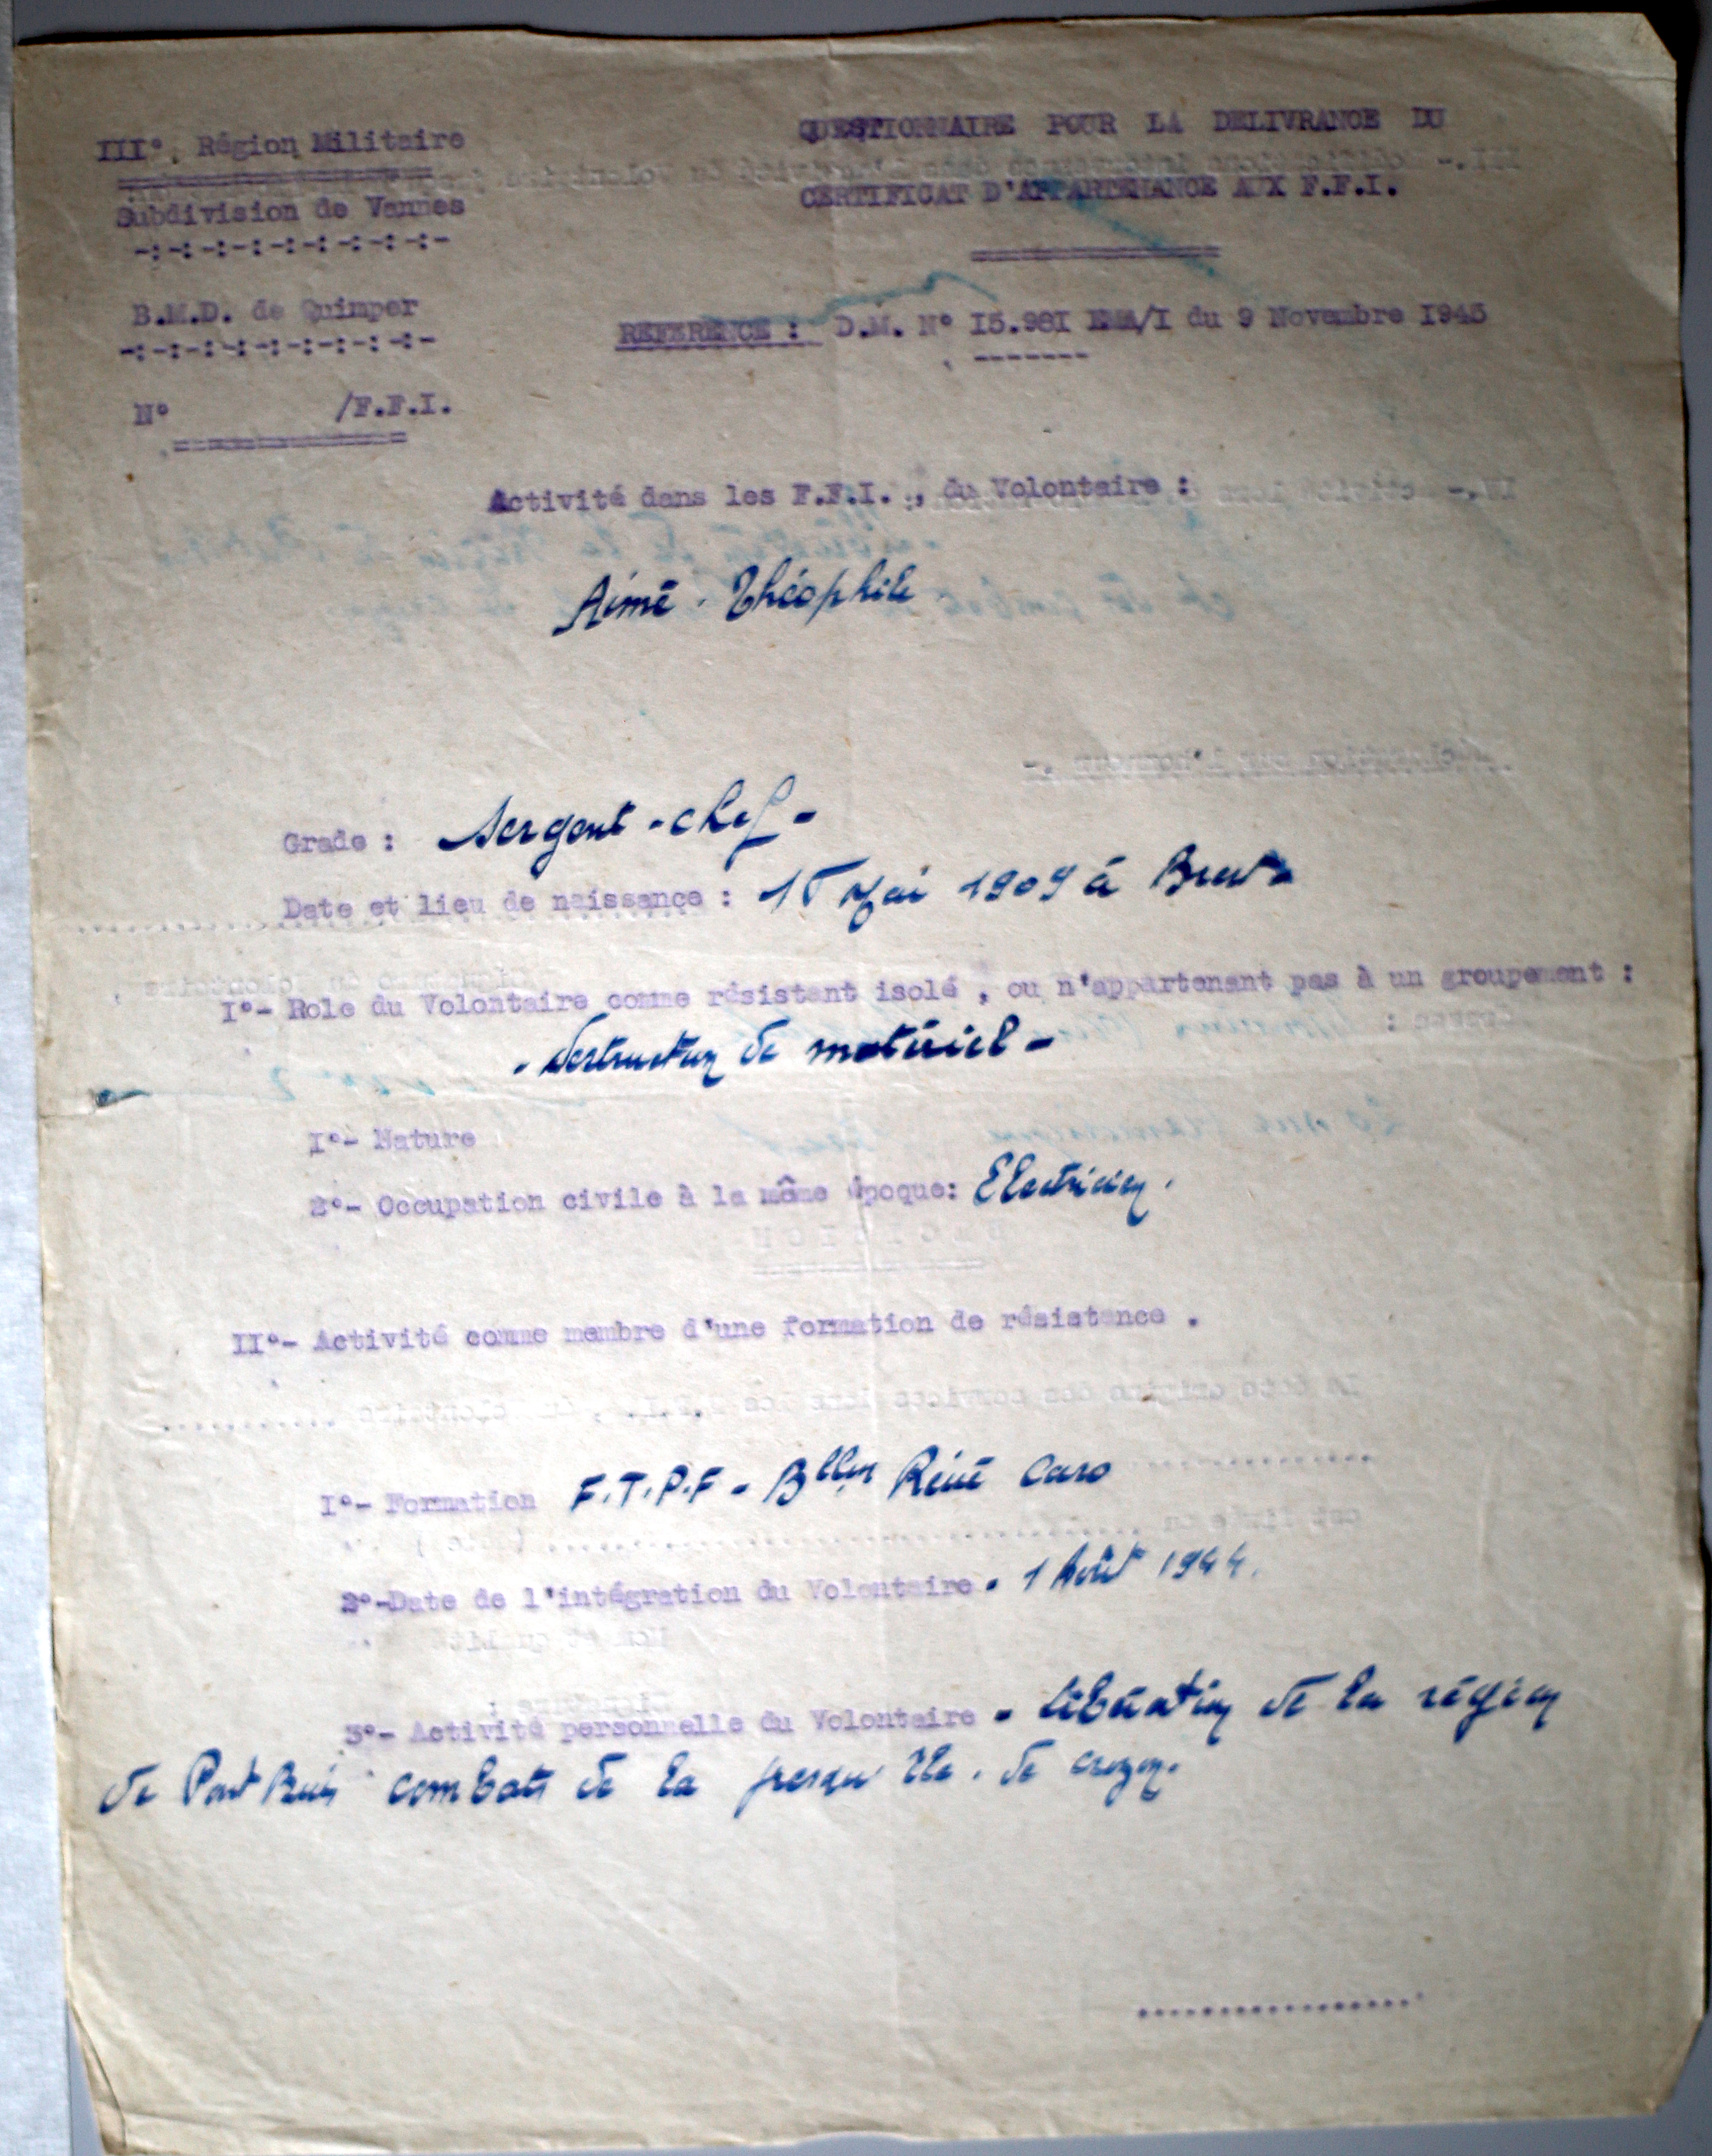 III°. Région Militaire
Subdivision de Vannes
-:-:-:-:-:-:-:-:-:-
B.M.D. de Quimper
-:-:-:-:-:-:-:-:-:-
N° /F.F.I.
QUESTIONNAIRE POUR LA DELIVRANCE DU
CERTIFICAT D'APPARTENANCE AUX F.F.I.
REFERENCE : D.M. N° I5.981 EMA/I du 9 Novembre 1945
-------
Activité dans les F.F.I. , du Volontaire :
Aimé . Théophile
Grade : Sergent - chef -
Date et lieu de naissance : Mai 1909 à Brest
I°- Role du Volontaire comme résistant isolé , ou n'appartenant pas à un groupement :
- destruction de matériel -
I°- Nature
2°- Occupation civile à la même époque: Electricien .
II°- Activité comme membre d'une formation de résistance .
I°- Formation F.T.P.F - Bllon René Caro
2°-Date de l'intégration du Volontaire - 1 Août 1944.
3°- Activité personnelle du Volontaire - Libération de la région
de Pont Buis combats de la presqu'île . de Crozon.
.................